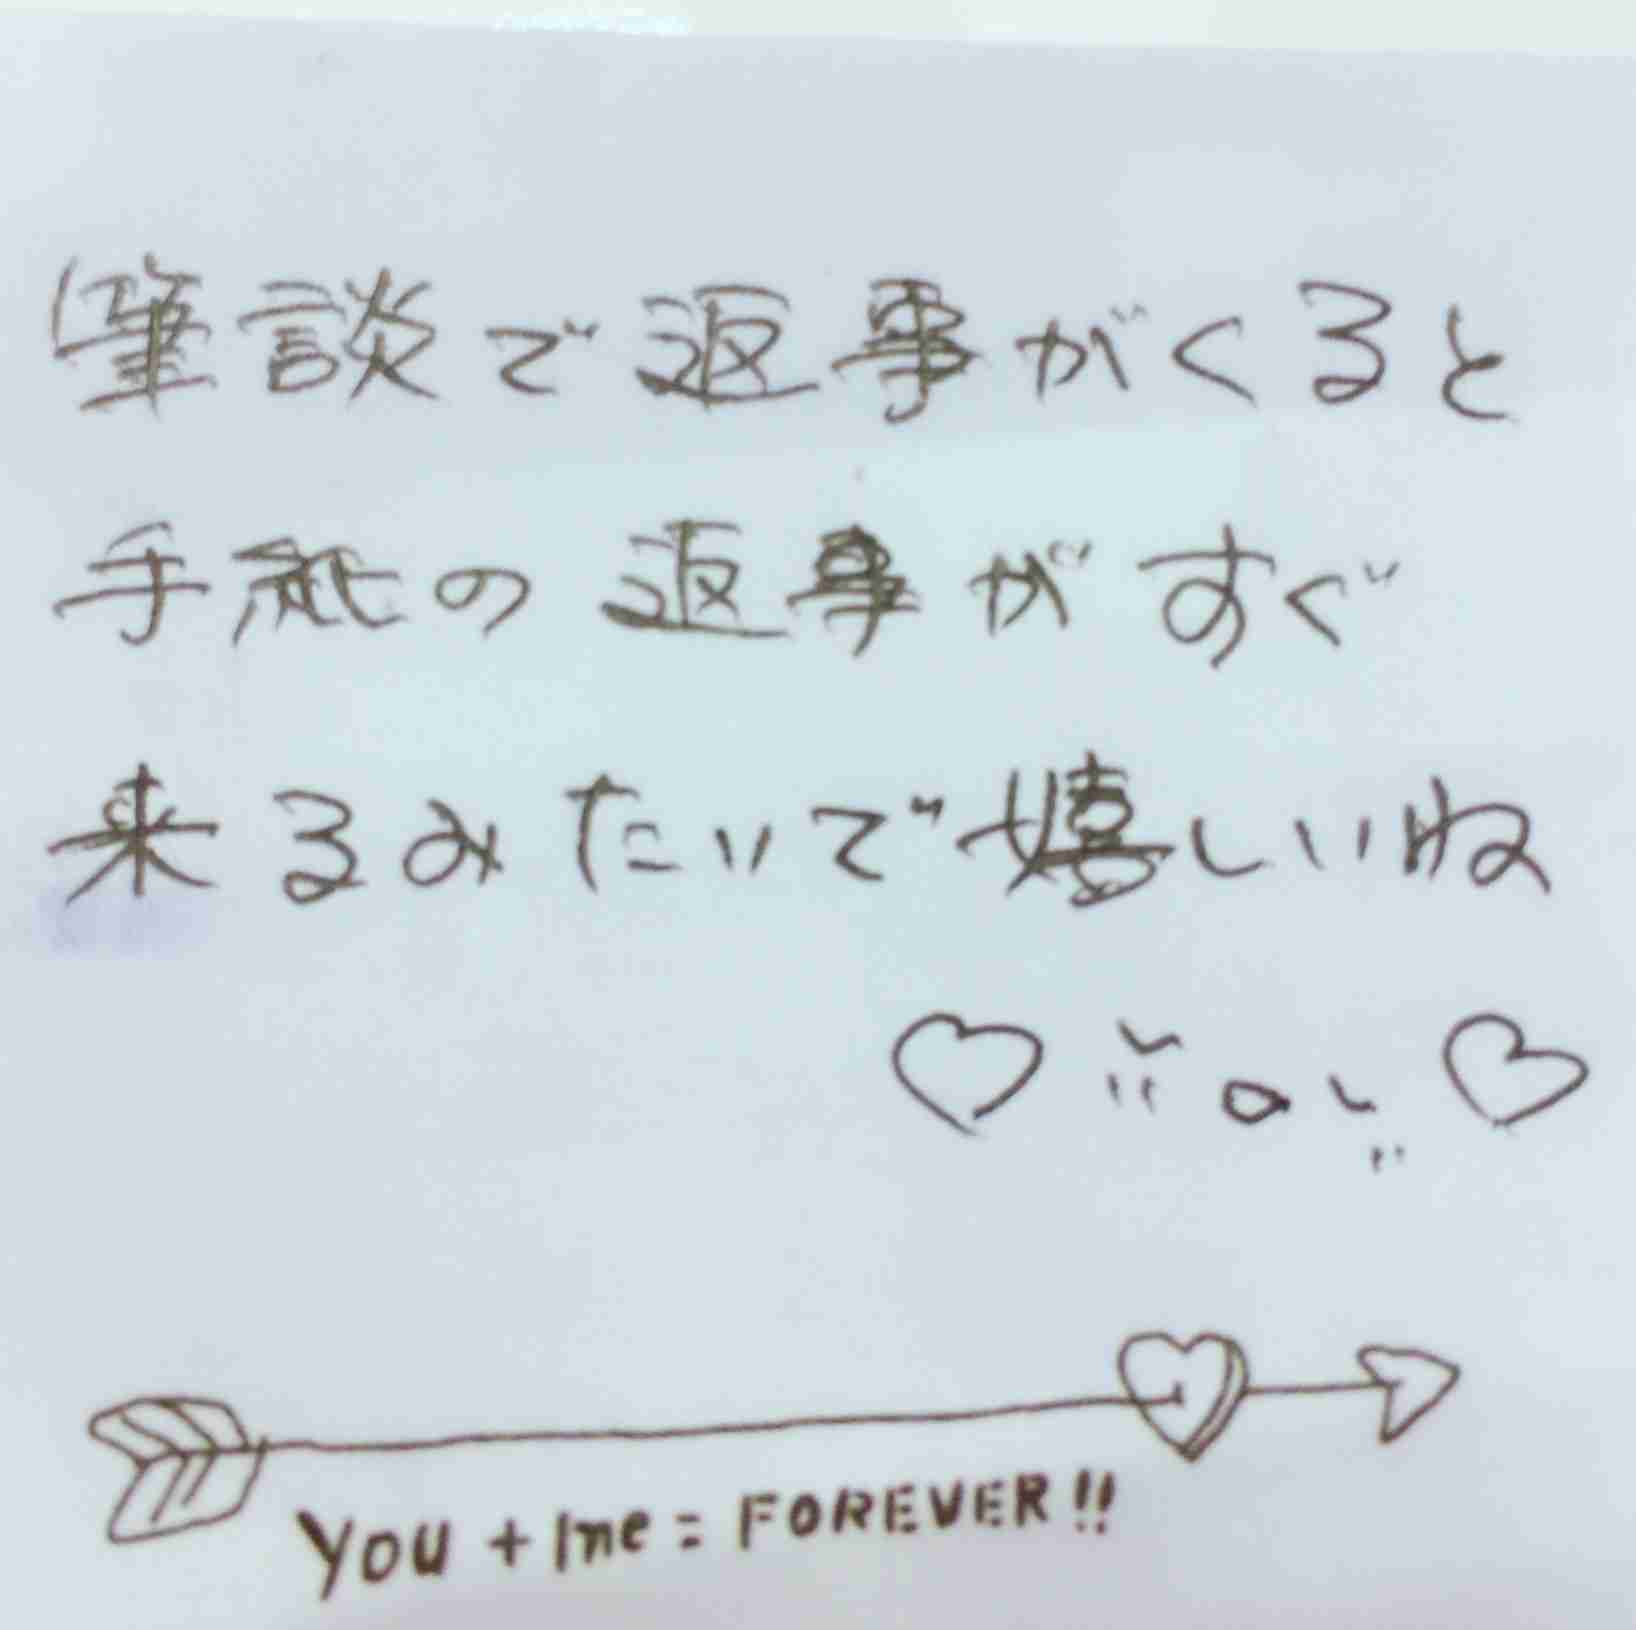 筆談で返事がくると
手紙の返事がすぐ
来るみたいで嬉しいね
You + me = FOREVER!!